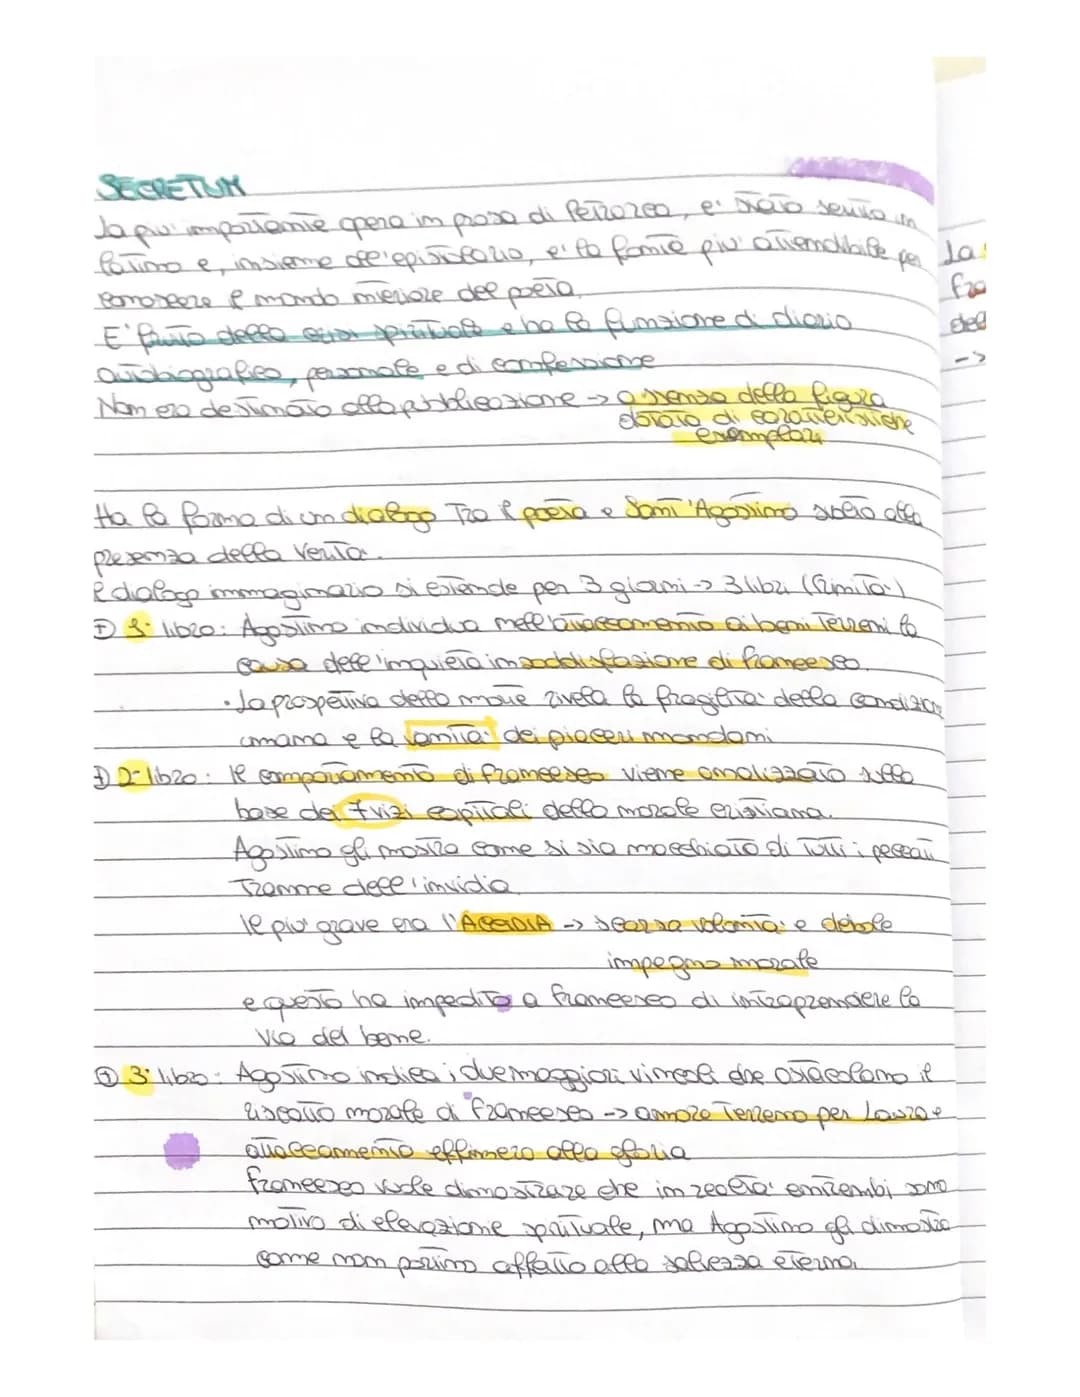 SECRETUM
La piu' importante opera in prosa di Petrarca, e' stato scritto in
latino e, insieme all'epistolario, e' la fonte piu' attendibile per
conoscere il mondo interiore del poeta.
E' frutto della crisi spirituale e ha la funzione di diario
autobiografico, personale e di confessione
Non era destinato alla pubblicazione -> assenza della figura
dotata di caratteristiche
esemplari
Ha la forma di un dialogo Tra il poeta e Sant'Agostino svolto alla
presenza della Verita'.
Il dialogo immaginario si estende per 3 giorni -> 3 libri (Trinita')
1° libro: Agostino individua nell'attaccamento ai beni Terreni la
causa dell'inquieta insoddisfazione di francesco.
· La prospettiva della morte rivela la fragilita' della condizione
umana e la vanita' dei piaceri mondani
2° libro: Il comportamento di francesco viene analizzato sulla
base dei 7 vizi capitali della morale cristiana.
Agostino gli mostra come si sia macchiato di Tutti i peccati
Tranne dell'invidia
Il piu' grave era l'ACCIDIA -> scarsa volonta' e debole
impegno morale
e questo ha impedito a francesco di intraprendere la
via del bene.
3° libro: Agostino indica i due maggiori vincoli che ostacolano il
riscatto morale di francesco -> amore Terreno per Laura e
attaccamento effimero alla gloria
francesco vuole dimostrare che in realta' entrambi sono
motivo di elevazione spirituale, ma Agostino gli dimostra
come non portino affatto alla salvezza eterna.
La
fra
del
->